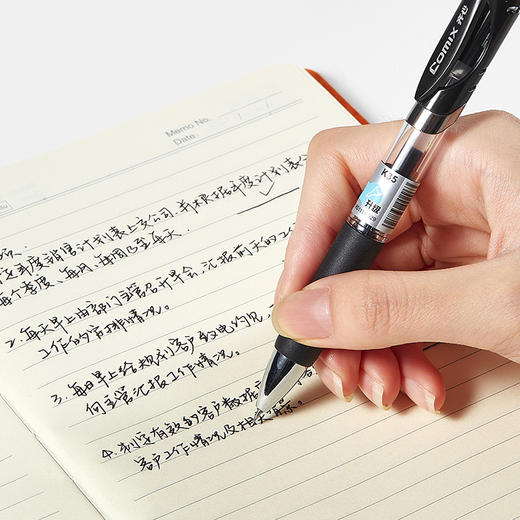 Memo No.
Date
年度销售计划表上交公司,并根据年度计划表
每个季度、每月、每周乃至每天。
2. 每天早上由部门主管召开早会,汇报前天的工
工作的安排情况。
3. 每日早上给规划客户致电约见,
何主管汇报工作情况。
4. 制定有效的客户数据
客户工作情况及相关了解。
Comix 齐心
K35
升级